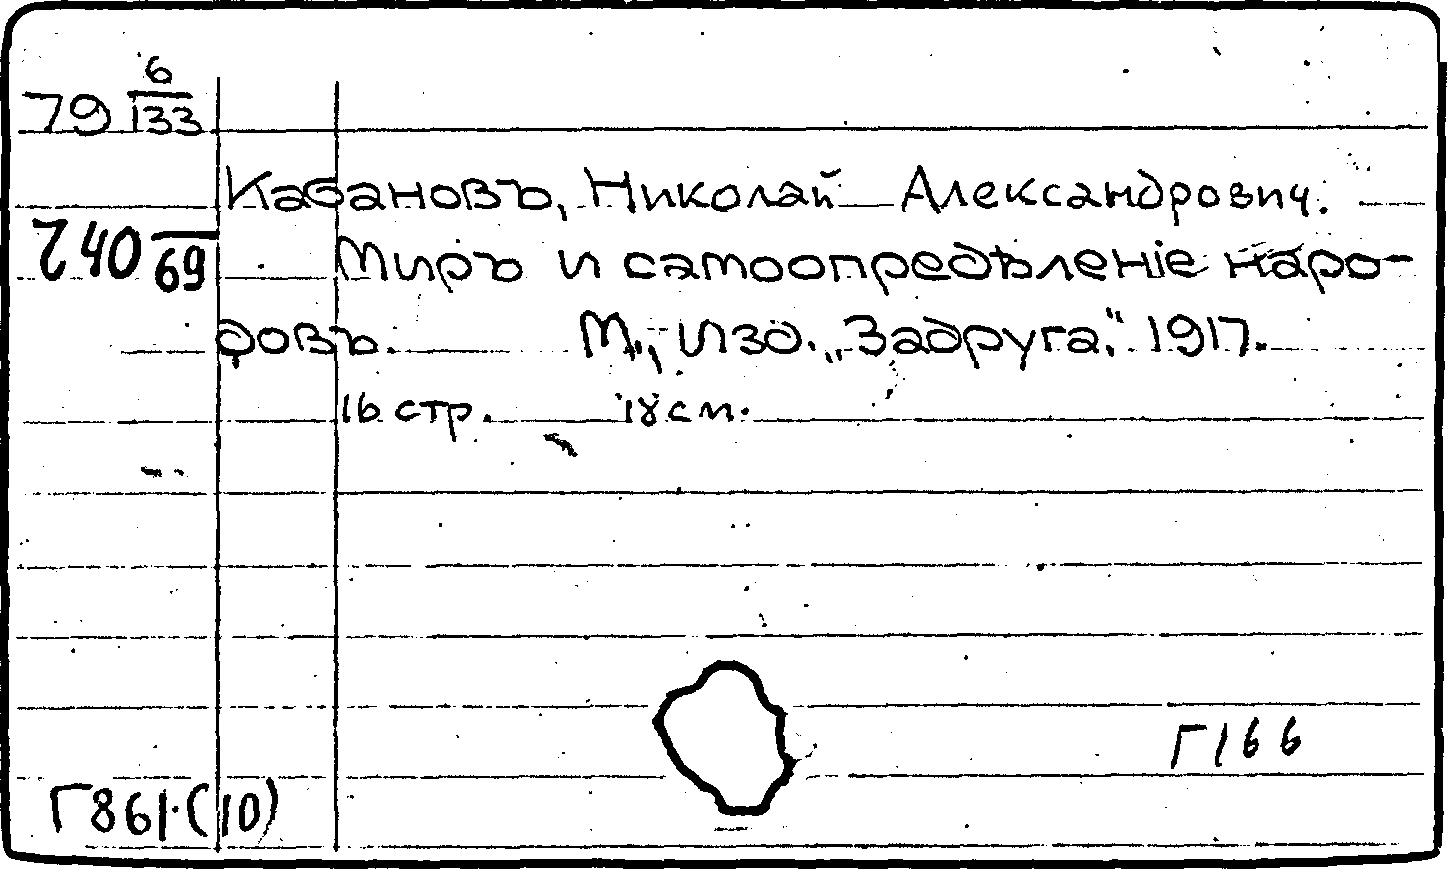 79 6/133
Кабановъ, Николай Александрович.
240 /69
Миръ и самоопредѣленіе наро-
довъ. М., Изд. „Задруга“, 1917.
16 стр. 18 см.
Г166
Г861.(10)